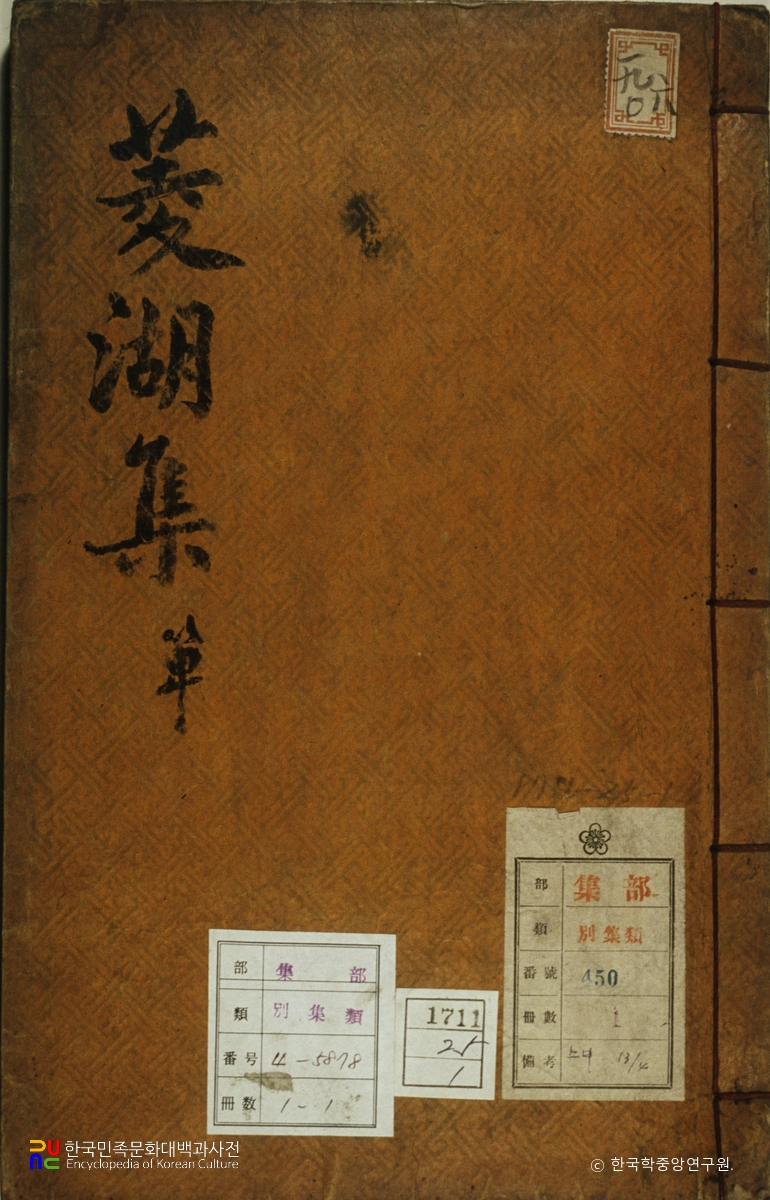 菱湖集
単
一九八
〇六
集部
部
類
別集類
番號
450
冊數
1
備考
13/4
集部
部
類
別集類
番号
4-5878
冊数
1-1
1711
25
1
한국민족문화대백과사전
Encyclopedia of Korean Culture
© 한국학중앙연구원.